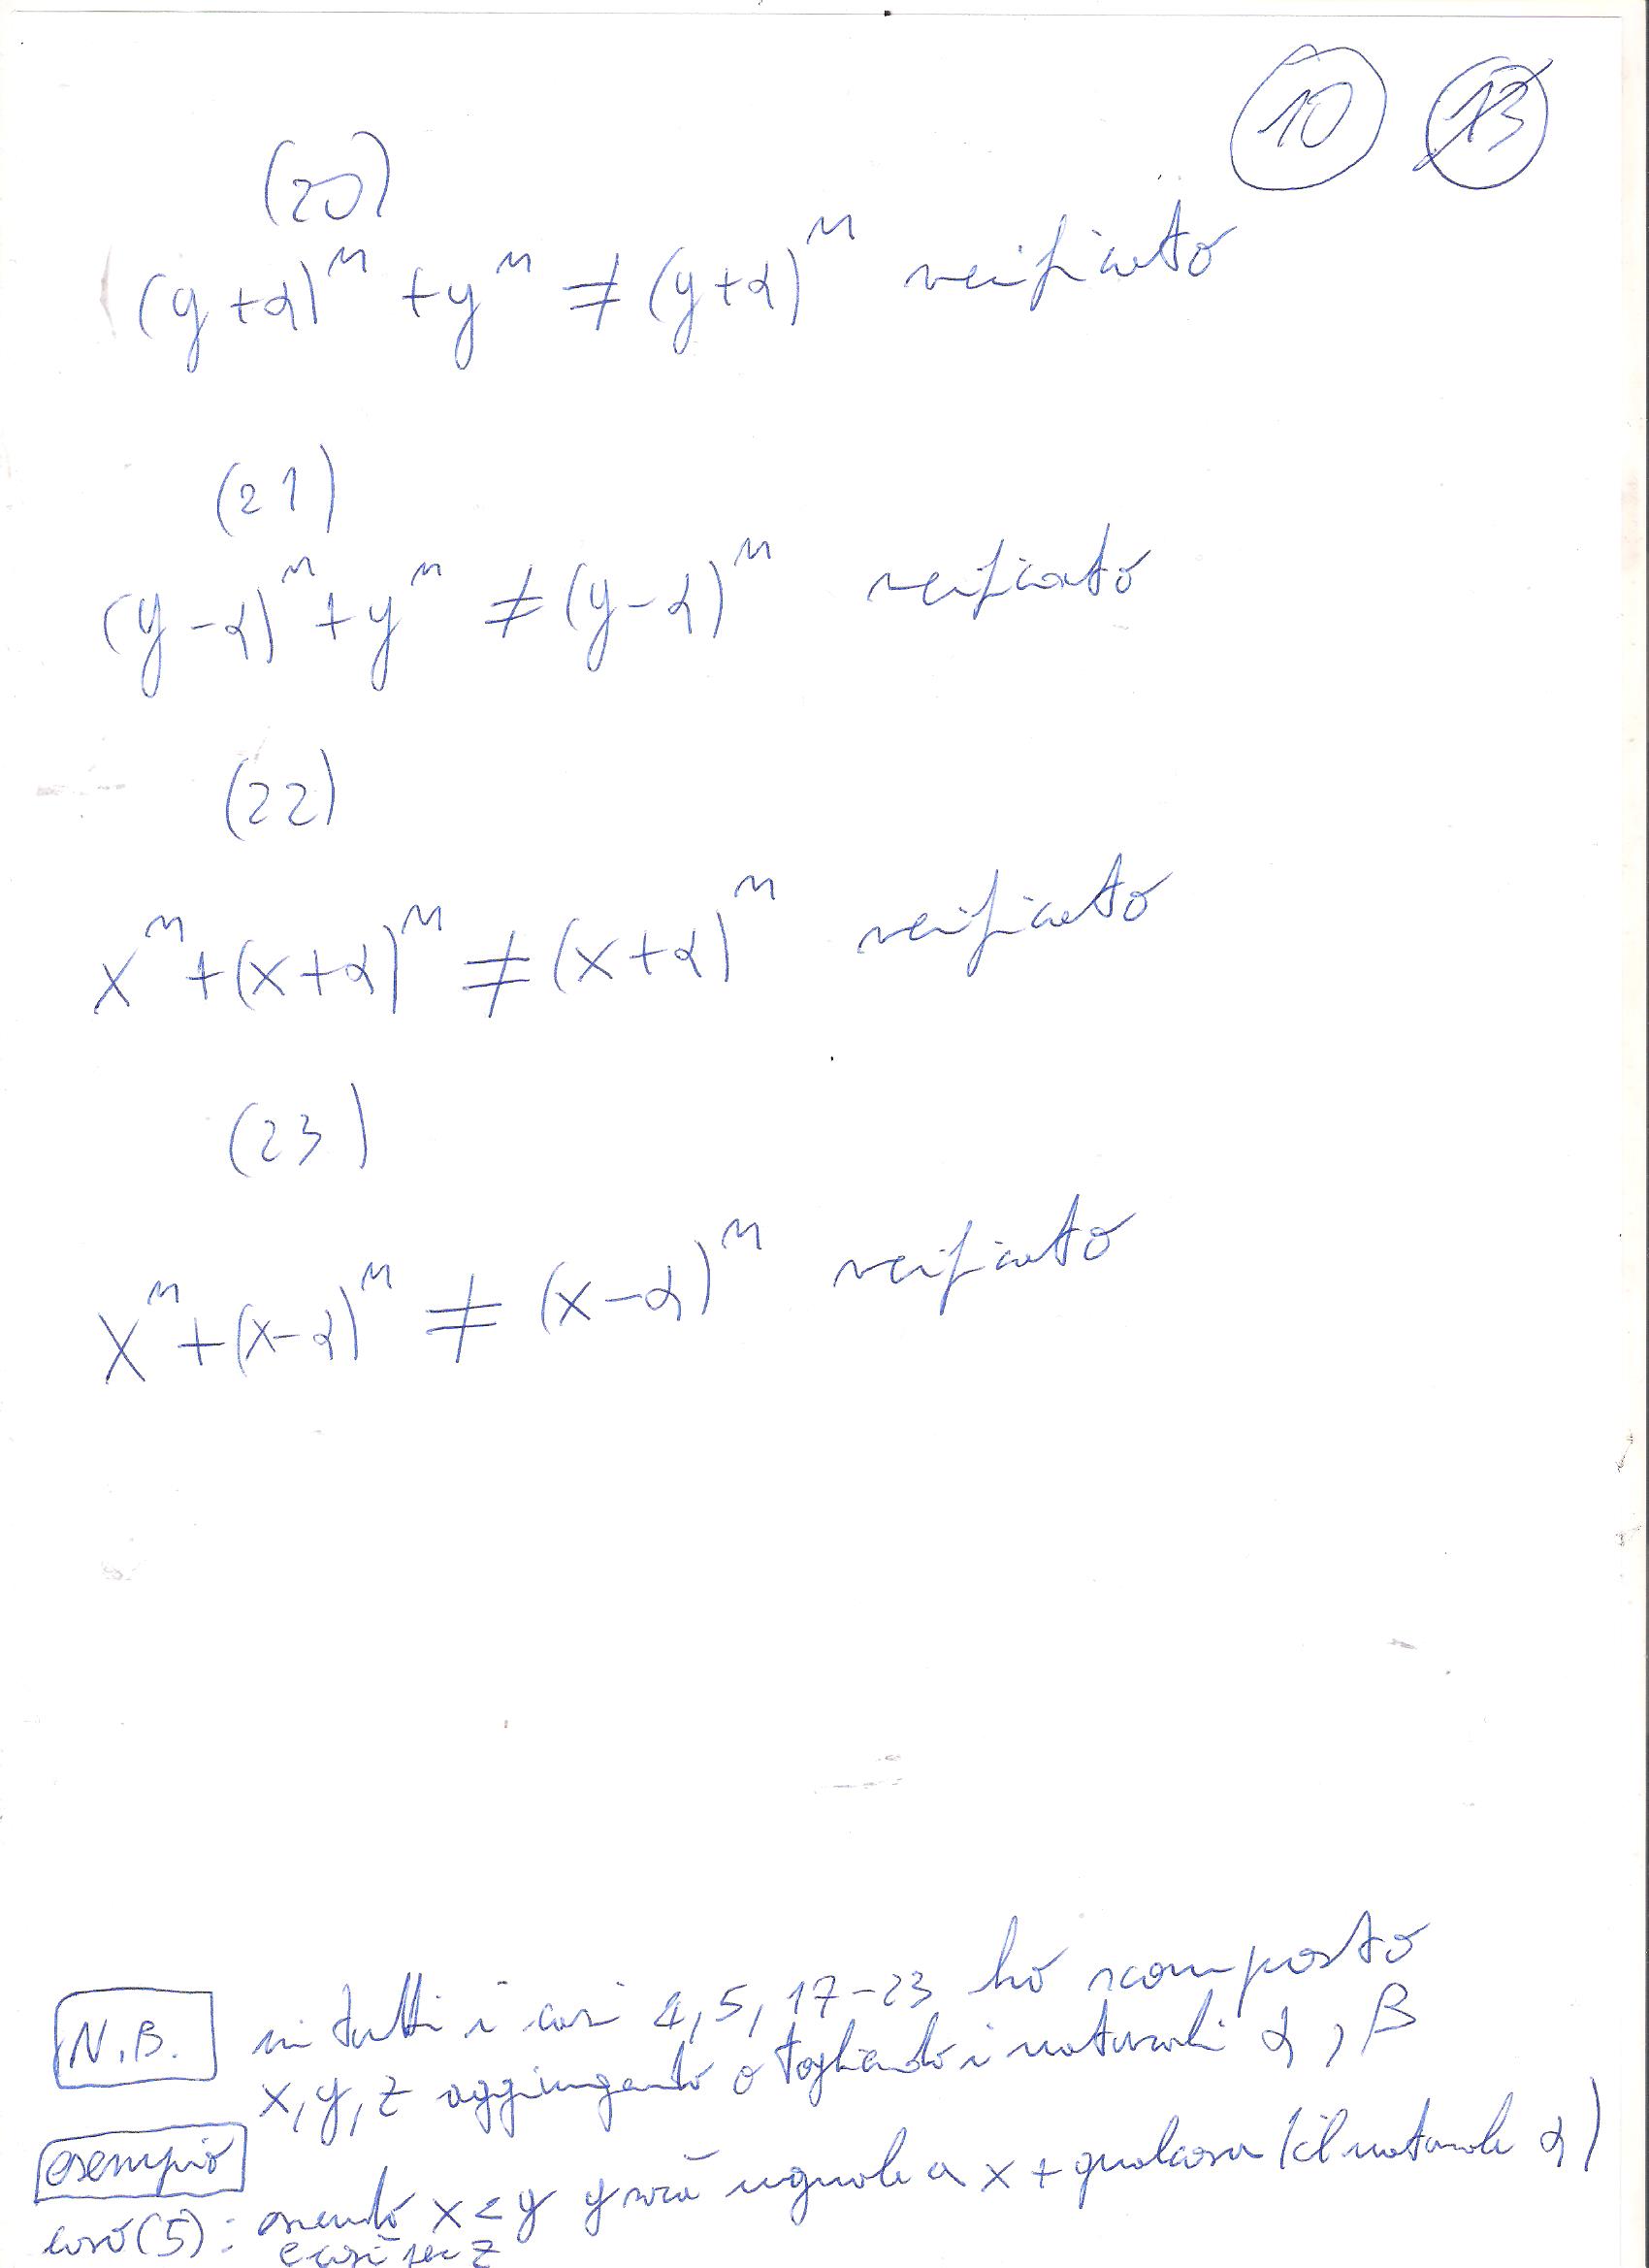 10 13
(20)
(y+α)^n + y^n ≠ (y+α)^n verificato
(21)
(y-α)^n + y^n ≠ (y-α)^n verificato
(22)
x^n + (x+α)^n ≠ (x+α)^n verificato
(23)
x^n + (x-α)^n ≠ (x-α)^n verificato
N.B. in tutti i casi 4, 5, 17-23 ho scomposto
x, y, z aggiungendo o togliendo i naturali α, β
esempio
caso (5): essendo x < y y sarà uguale a x + qualcosa (il naturale α)
e così z